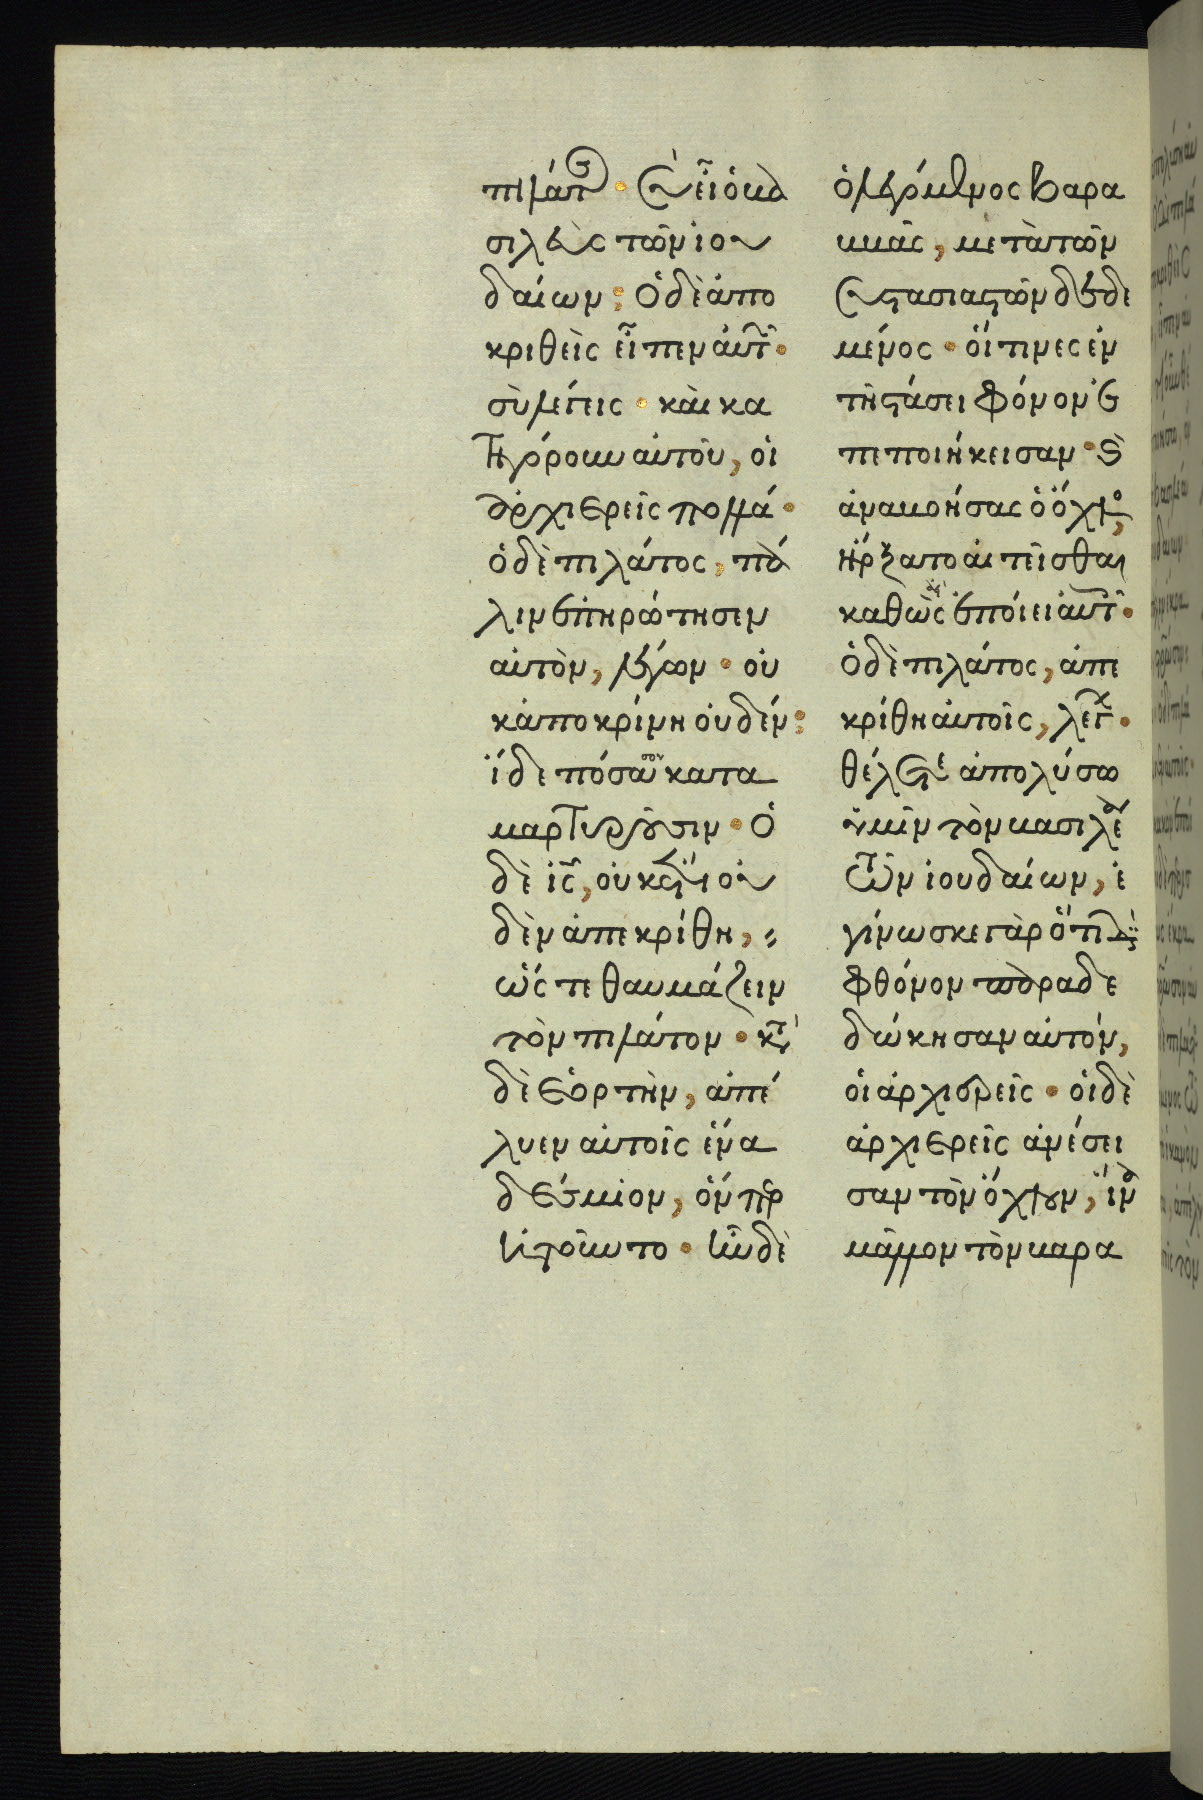 πιλάτος· Σὺ εἶ ὁ βα
σιλεὺς τῶν ἰου
δαίων; Ὁ δὲ ἀπο
κριθεὶς εἶπεν αὐτῶ·
σὺ λέγεις· καὶ κα
τηγόρουν αὐτοῦ, οἱ
ἀρχιερεῖς πολλά·
ὁ δὲ πιλάτος, πά
λιν ἐπηρώτησεν
αὐτὸν, λέγων· οὐ
κ ἀποκρίνη οὐδέν;
ἴδε πόσα σου κατα
μαρτυροῦσιν· Ὁ
δὲ ις, οὐκ ἔτι οὐ
δὲν ἀπεκρίθη,
ὥστε θαυμάζειν
τὸν πιλάτον· κατὰ
δὲ ἑορτὴν, ἀπέ
λυεν αὐτοῖς ἕνα
δέσμιον, ὅνπερ
ἠτοῦντο· ἦν δὲ
ὁ λεγόμενος βαρα
ββᾶς, μετὰ τῶν
συστασιαστῶν δεδε
μένος· οἵτινες ἐν
τῆ στάσει φόνον ἐ
πεποιήκεισαν· καὶ
ἀναβοήσας ὁ ὄχλος,
ἤρξατο αἰτεῖσθαι
καθὼς ἀεὶ ἐποίει αὐτοῖς·
Ὁ δὲ πιλάτος, ἀπε
κρίθη αὐτοῖς, λέγων·
θέλετε ἀπολύσω
ὑμῖν τὸν βασιλέα
τῶν ἰουδαίων, ἐ
γίνωσκε γὰρ ὅτι διὰ
φθόνον παραδε
δώκησαν αὐτόν,
οἱ ἀρχιερεῖς· οἱ δὲ
ἀρχιερεῖς ἀνέσει
σαν τὸν ὄχλον, ἵνα
μᾶλλον τὸν βαρα